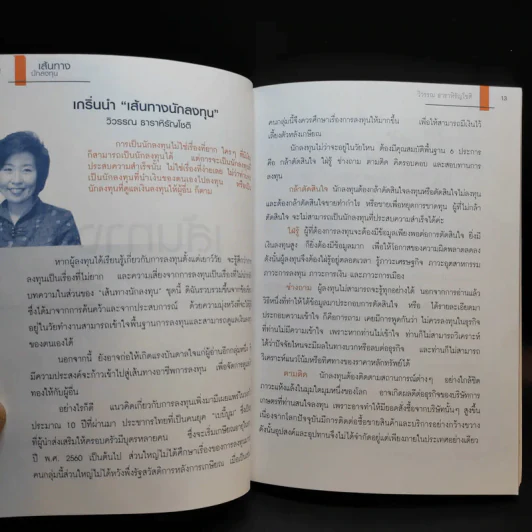 เส้นทาง
นักลงทุน
เกริ่นนำ “เส้นทางนักลงทุน”
วิวรรณ ธาราหิรัญโชติ
การเป็นนักลงทุนไม่ใช่เรื่องที่ยาก ใครๆ ก็มี
ก็สามารถเป็นนักลงทุนได้ แต่การจะเป็นนักลงทุนที่
ประสบความสำเร็จนั้น ไม่ใช่เรื่องที่ง่ายเลย ไม่ว่าท่านจะ
เป็นนักลงทุนที่นำเงินของตนเองไปลงทุน หรือเป็น
นักลงทุนที่ดูแลเงินลงทุนให้ผู้อื่น ก็ตาม
หากผู้ลงทุนได้เรียนรู้เกี่ยวกับการลงทุนตั้งแต่เยาว์วัย จะรู้สึก
ลงทุนเป็นเรื่องที่ไม่ยาก และความเสี่ยงจากการลงทุนเป็นเรื่องที่
บทความในส่วนของ “เส้นทางนักลงทุน” ชุดนี้ ดิฉันรวบรวมขึ้นจาก
ซึ่งได้มาจากการค้นคว้าและจากประสบการณ์ ด้วยความมุ่งหวังที่จะให้
อยู่ในวัยทำงานสามารถเข้าใจพื้นฐานการลงทุนและสามารถดูแล
ของตนเองได้
นอกจากนี้ ยังอาจก่อให้เกิดแรงบันดาลใจแก่ผู้อ่านอีกกลุ่มหนึ่ง
มีความประสงค์จะก้าวเข้าไปสู่เส้นทางอาชีพการลงทุน เพื่อจัดการ
ทองให้กับผู้อื่น
อย่างไรก็ดี แนวคิดเกี่ยวกับการลงทุนเพิ่งมามีเผยแพร่ใน
ประมาณ 10 ปีที่ผ่านมา ประชากรไทยที่เป็นคนยุค “เบบี้บูม”
ที่ผู้นำส่งเสริมให้ครอบครัวมีบุตรหลายคน ซึ่งจะเริ่มเกษียณอายุ
ปี พ.ศ. 2560 เป็นต้นไป ส่วนใหญ่ไม่ได้ศึกษาเรื่องของการลงทุน
คนกลุ่มนี้ส่วนใหญ่ไม่ได้หวังพึ่งรัฐสวัสดิการหลังการเกษียณ
วิวรรณ ธาราหิรัญโชติ
13
คนกลุ่มนี้จึงควรศึกษาเรื่องการลงทุนให้มากขึ้น เพื่อให้สามารถมีเงินไว้
เลี้ยงตัวหลังเกษียณ
นักลงทุนไม่ว่าจะอยู่ในวัยไหน ต้องมีคุณสมบัติพื้นฐาน 6 ประการ
คือ กล้าตัดสินใจ ใฝ่รู้ ช่างถาม ตามติด คิดรอบคอบ และสอบทานการ
ลงทุน
กล้าตัดสินใจ นักลงทุนต้องกล้าตัดสินใจลงทุนหรือตัดสินใจไม่ลงทุน
และต้องกล้าตัดสินใจขายทำกำไร หรือขายเพื่อหยุดการขาดทุน ผู้ที่ไม่กล้า
ตัดสินใจ จะไม่สามารถเป็นนักลงทุนที่ประสบความสำเร็จได้ค่ะ
ใฝ่รู้ ผู้ที่ต้องการลงทุนจะต้องมีข้อมูลเพียงพอต่อการตัดสินใจ ยิ่งมี
เงินลงทุนสูง ก็ยิ่งต้องมีข้อมูลมาก เพื่อให้โอกาสของความผิดพลาดลดลง
ดังนั้นผู้ลงทุนจึงต้องใฝ่รู้อยู่ตลอดเวลา รู้ภาวะเศรษฐกิจ ภาวะอุตสาหกรรม
ภาวะการลงทุน ภาวะการเงิน และภาวะการเมือง
ช่างถาม ผู้ลงทุนไม่สามารถจะรู้ทุกอย่างได้ นอกจากการอ่านแล้ว
วิธีหนึ่งที่ทำให้ได้ข้อมูลมาประกอบการตัดสินใจ หรือ ได้รายละเอียดมา
ประกอบความเข้าใจ ก็คือการถาม เคยมีการพูดกันว่า ไม่ควรลงทุนในธุรกิจ
ที่ท่านไม่มีความเข้าใจ เพราะหากท่านไม่เข้าใจ ท่านก็ไม่สามารถวิเคราะห์
ได้ว่าปัจจัยไหนจะมีผลในทางบวกหรือลบต่อธุรกิจ และท่านก็ไม่สามารถ
วิเคราะห์แนวโน้มหรือทิศทางของราคาหลักทรัพย์ได้
ตามติด นักลงทุนต้องติดตามสถานการณ์ต่างๆ อย่างใกล้ชิด
ภาวะแห้งแล้งในมุมใดมุมหนึ่งของโลก อาจเกิดผลดีต่อธุรกิจของบริษัทการ
เกษตรที่ท่านสนใจลงทุน เพราะอาจทำให้มียอดสั่งซื้อจากบริษัทนั้นๆ สูงขึ้น
เนื่องจากโลกปัจจุบันมีการติดต่อซื้อขายสินค้าและบริการอย่างกว้างขวาง
ดังนั้นอุปสงค์และอุปทานจึงไม่ได้จำกัดอยู่แต่เพียงภายในประเทศอย่างเดียว